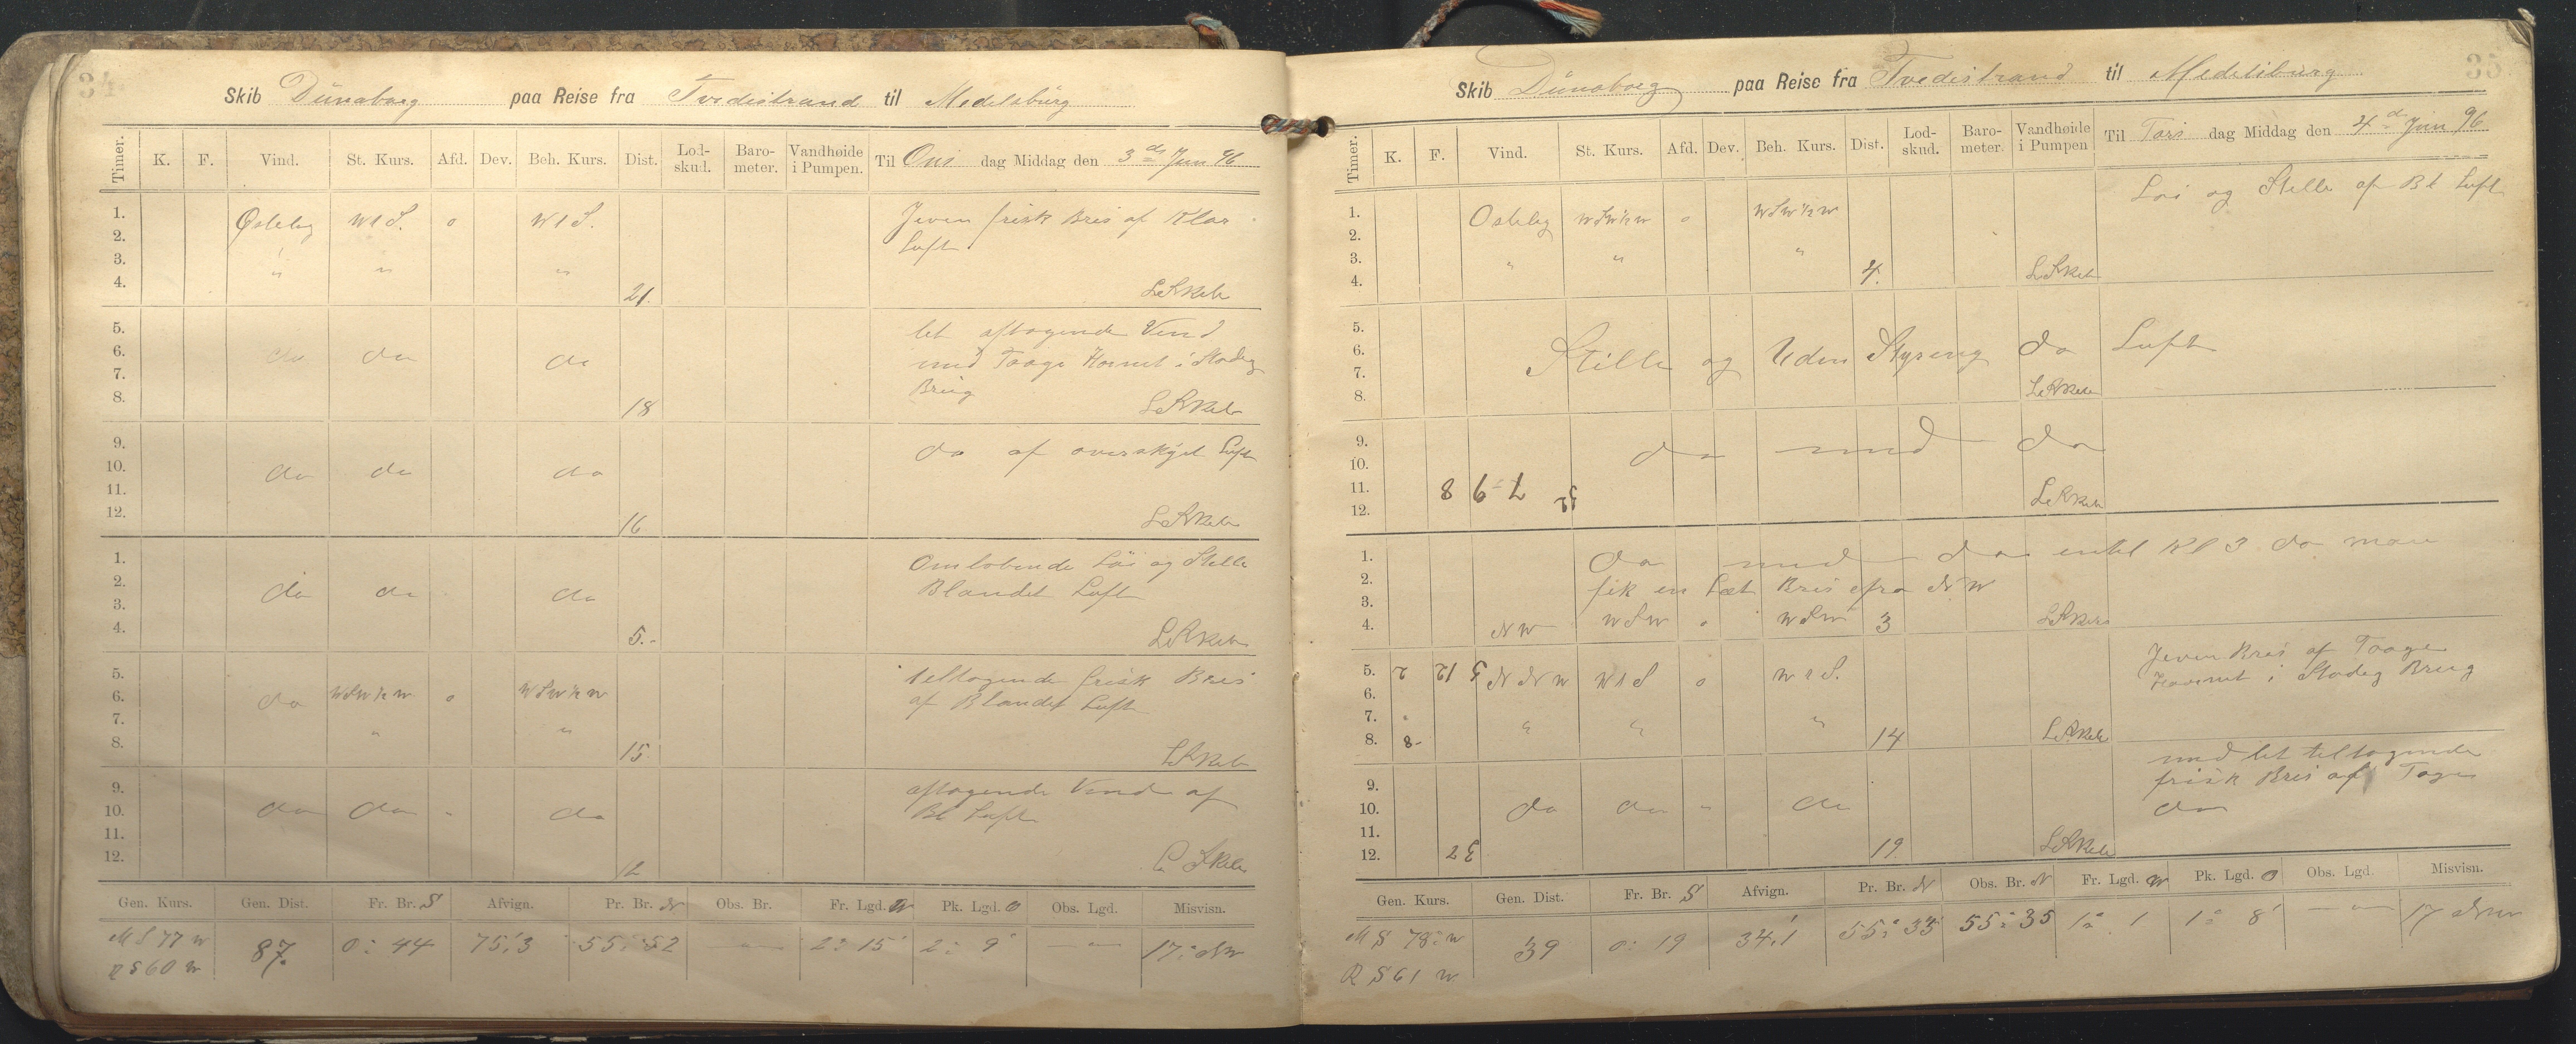 34
Skib Dünaborg paa Reise fra Tvedestrand til Medelsburg
Timer. K. F. Vind. St. Kurs. Afd. Dev. Beh. Kurs. Dist. Lod-skud. Baro-meter. Vandhøide i Pumpen. Til Ons dag Middag den 3de Juni 96
1. Østelig W t S. o W t S. Jevn frisk Bris af Klar
2. Luft.
3. " " "
4. 21. 
5. let aftagende Vind
6. do do do med Taage Hornet i Stadig
7. Brug
8. 18
9. do af overskyet Luft
10. do do do
11.
12. 16
1. Omløbende Løi og Stille
2. do do do Blandet Luft
3.
4. 5.-
5. tiltagende frisk Bris
6. do WSW½W o WSW½W af Blandet Luft
7. " "
8. 15
9. aftagende Vind af
10. do do " do Bl Luft
11.
12. 12
Gen. Kurs. Gen. Dist. Fr. Br. S Afvign. Pr. Br. N Obs. Br. Fr. Lgd. W Pk. Lgd. O Obs. Lgd. Misvisn.
M S 77 W 87. 0° 44 75,3 55° 52 — 2° 15' 2° 9' — 17° NW
R S 60 W
35
Skib Dünaborg paa Reise fra Tvedestrand til Medelsburg
Timer. K. F. Vind. St. Kurs. Afd. Dev. Beh. Kurs. Dist. Lod-skud. Baro-meter. Vandhøide i Pumpen Til Tors dag Middag den 4de Juni 96
1. Ostelig WSW½W o WSW½W Løi og Stille af Bl Luft
2.
3. " " "
4. 4.
5.
6. Stille og Uden Styring do Luft
7.
8.
9. do med do
10.
11. 8 6-7
12.
1. do med do intil Kl 3 da man
2. fik en Let Bris fra NW
3.
4. NW WSW o WSW 3
5. NNW W t S o W t S. Jevn Bris af Taage
6. Hornet i Stadig Brug
7. " " "
8. 8- 14
med let tiltagende
9. frisk Bris af Tage
10. do do " do do
11.
12. 19.
Gen. Kurs. Gen. Dist. Fr. Br. S Afvign. Pr. Br. N Obs. Br. N Fr. Lgd. W Pk. Lgd. O Obs. Lgd. Misvisn.
M S 78° W 39 0° 19 34,1 55° 33 55° 35 1° 1 1° 8' — 17 NW
R S 61 W